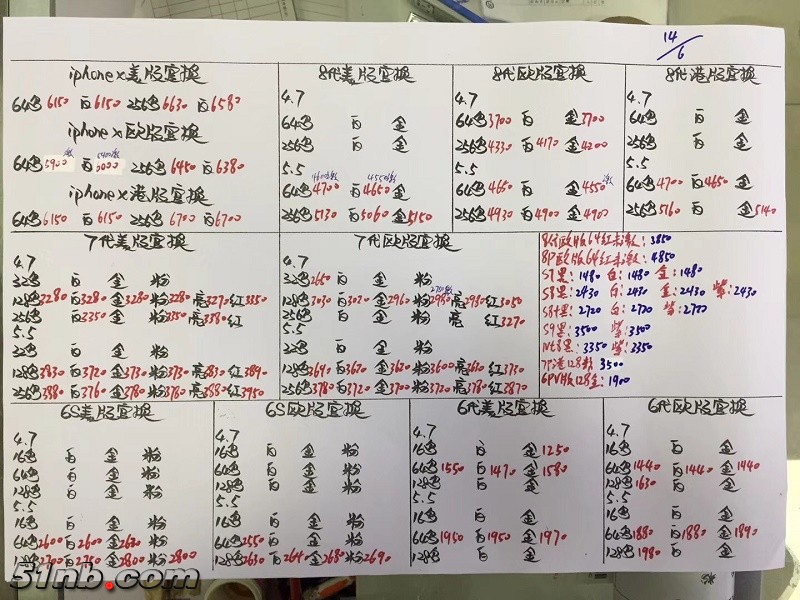 14/6
iphone x美版官换
64色 6150 白 6150 256色 6630 白 6580
iphone x欧版官换
64色 5900 白 6000 256色 6450 白 6380
iphone x港版官换
64色 6150 白 6150 256色 6700 白 6700
8代美版官换
4.7
64色 白 金
256色 白 金
5.5
64色 4700 白 4650 金
256色 5130 白 5060 金 5150
8代欧版官换
4.7
64色 3700 白 金 3700
256色 4330 白 4170 金 4200
5.5
64色 4650 白 金 4550
256色 4930 白 4900 金 4900
8代港版官换
4.7
64色 白 金
256色 白 金
5.5
64色 4700 白 4650 金
256色 5160 白 金 5140
7代美版官换
4.7
32色 白 金 粉
128色 3280 白 3280 金 3280 粉 3280 亮 3270 红 3350
256色 白 3350 金 粉 3350 亮 3380 红
5.5
32色 白 金 粉
128色 3830 白 3720 金 3730 粉 3730 亮 3830 红 3890
256色 3880 白 3760 金 3780 粉 3780 亮 3880 红 3950
7代欧版官换
4.7
32色 2650 白 金 粉
128色 3030 白 3020 金 2960 粉 2980 亮 2980 红 3050
256色 白 金 粉 亮 红 3270
5.5
32色 白 金 粉
128色 3690 白 3620 金 3620 粉 3600 亮 3630 红 3730
256色 3780 白 3720 金 3700 粉 3720 亮 3780 红 3870
8代欧版64红未激: 3850
8P欧版64红未激: 4850
S7黑: 1480 白: 1480 金: 1480
S8黑: 2430 白: 2430 金: 2430 紫: 2430
S8+黑: 2720 白: 2700 紫: 2700
S9黑: 3500 紫: 3500
Nt8黑: 3350 紫: 3350
7P港128粉 3500
6PV版128金: 1900
6S美版官换
4.7
16色 白 金 粉
64色 白 金 粉
128色 白 金 粉
5.5
16色 白 金 粉
64色 2600 白 2600 金 2620 粉
128色 2700 白 2750 金 2800 粉 2800
6S欧版官换
4.7
16色 白 金 粉
64色 白 金 粉
128色 白 金 粉
5.5
16色 白 金 粉
64色 2550 白 金 粉
128色 2630 白 2640 金 2680 粉 2690
6代美版官换
4.7
16色 白 金 1250
64色 1550 白 1470 金 1580
128色 白 金
5.5
16色 白 金
64色 1950 白 1950 金 1970
128色 白 金
6代欧版官换
4.7
16色 白 金
64色 1440 白 1440 金 1440
128色 1630 白 金
5.5
16色 白 金
64色 1880 白 1880 金 1890
128色 1980 白 金
51nb.com